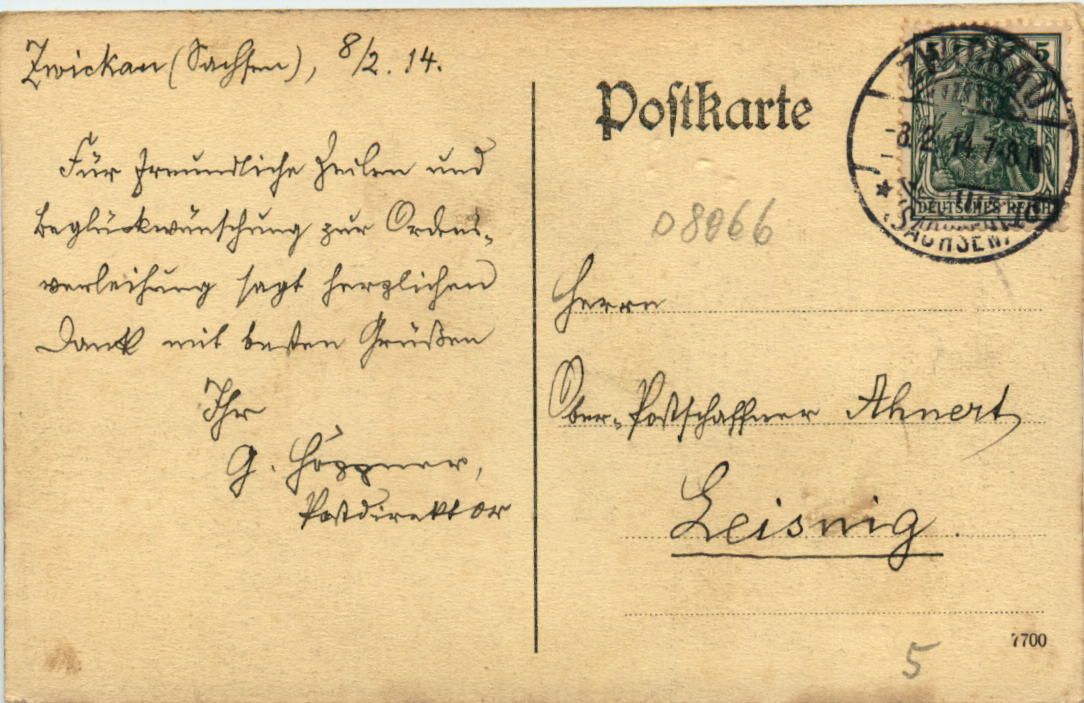 Zwickau (Sachsen), 8/2. 14.
Für freundliche Zeilen und
Beglückwünschung zur Ordens-
verleihung sagt herzlichen
Dank mit besten Grüßen
Ihr
G. Höppner,
Postdirektor
Postkarte
5 5
ZWICKAU
-8.2.14.7-8N
* (SACHSEN)
DEUTSCHES REICH
08066
Herrn
Ober-Postschaffner Ahnert,
Leisnig.
7700
5